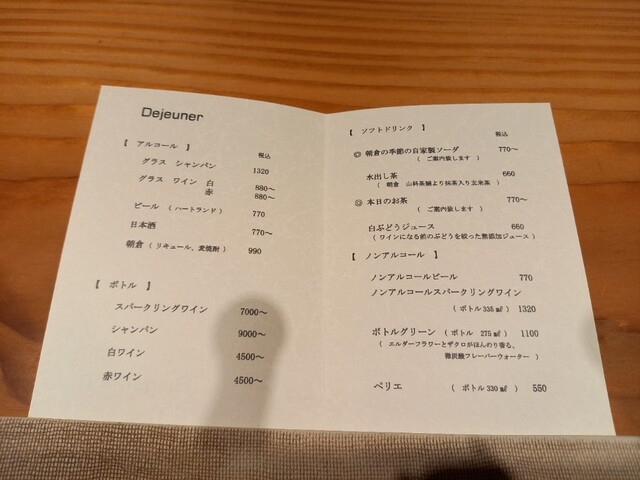 Dejeuner
【 アルコール 】
税込
グラス シャンパン 1320
グラス ワイン 白 880～
赤 880～
ビール （ハートランド） 770
日本酒 770～
朝倉 （リキュール、麦焼酎） 990
【 ボトル 】
スパークリングワイン 7000～
シャンパン 9000～
白ワイン 4500～
赤ワイン 4500～
【 ソフトドリンク 】
税込
◎ 朝倉の季節の自家製ソーダ 770～
（ ご案内致します ）
水出し茶 660
（ 朝倉 山科茶舗より抹茶入り玄米茶 ）
◎ 本日のお茶 770～
（ ご案内致します ）
白ぶどうジュース 660
（ ワインになる前のぶどうを絞った無添加ジュース ）
【 ノンアルコール 】
ノンアルコールビール 770
ノンアルコールスパークリングワイン
（ボトル335㎖） 1320
ボトルグリーン （ボトル 275㎖） 1100
（ エルダーフラワーとザクロがほんのり香る、
微炭酸フレーバーウォーター ）
ペリエ （ ボトル330㎖ ） 550